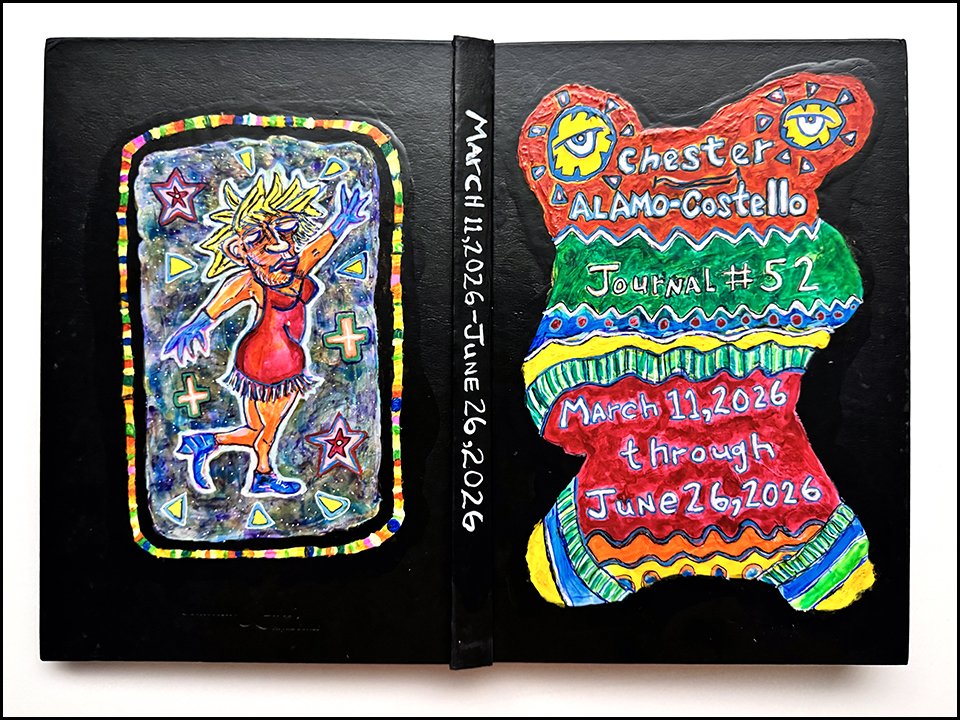 March 11, 2026-June 26, 2026
Chester
ALAMO-Costello
Journal #52
March 11, 2026
through
June 26, 2026